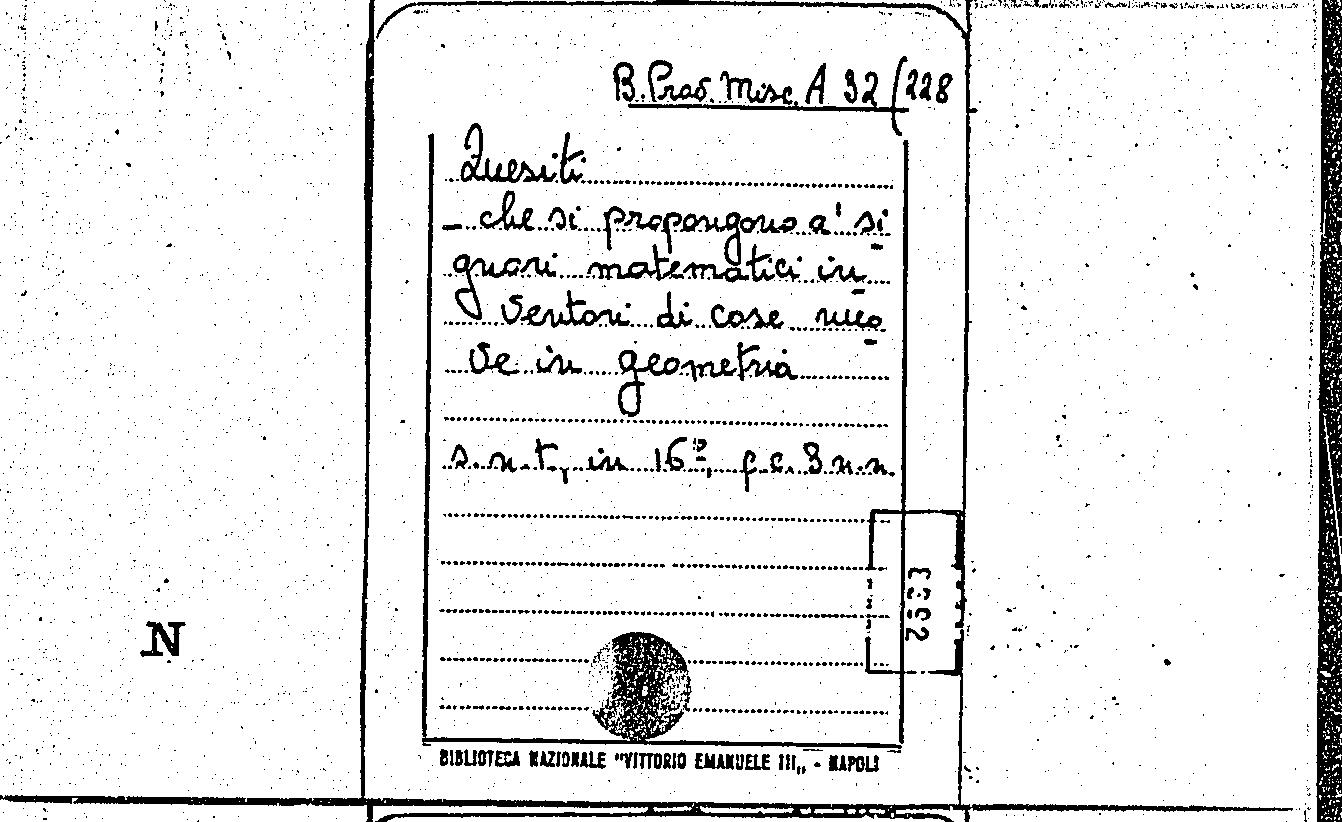 B. Prov. Misc. A 32 (228
Quesiti
- che si propongono a' si
gnori matematici in
ventori di cose nuo
ve in geometria
s.n.t., in 16º, f.c. 3 n.n.
N
BIBLIOTECA NAZIONALE "VITTORIO EMANUELE III„ - NAPOLI